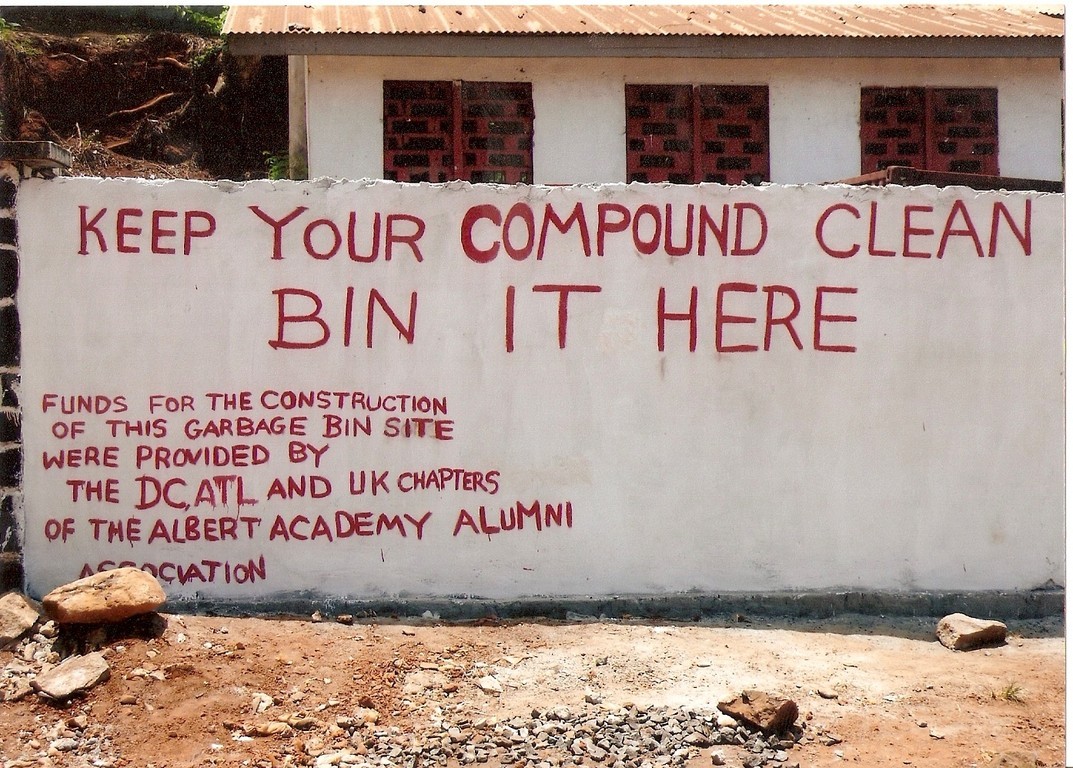 KEEP YOUR COMPOUND CLEAN
BIN IT HERE
FUNDS FOR THE CONSTRUCTION
OF THIS GARBAGE BIN SITE
WERE PROVIDED BY
THE DC, ATL AND UK CHAPTERS
OF THE ALBERT ACADEMY ALUMNI
ASSOCIATION